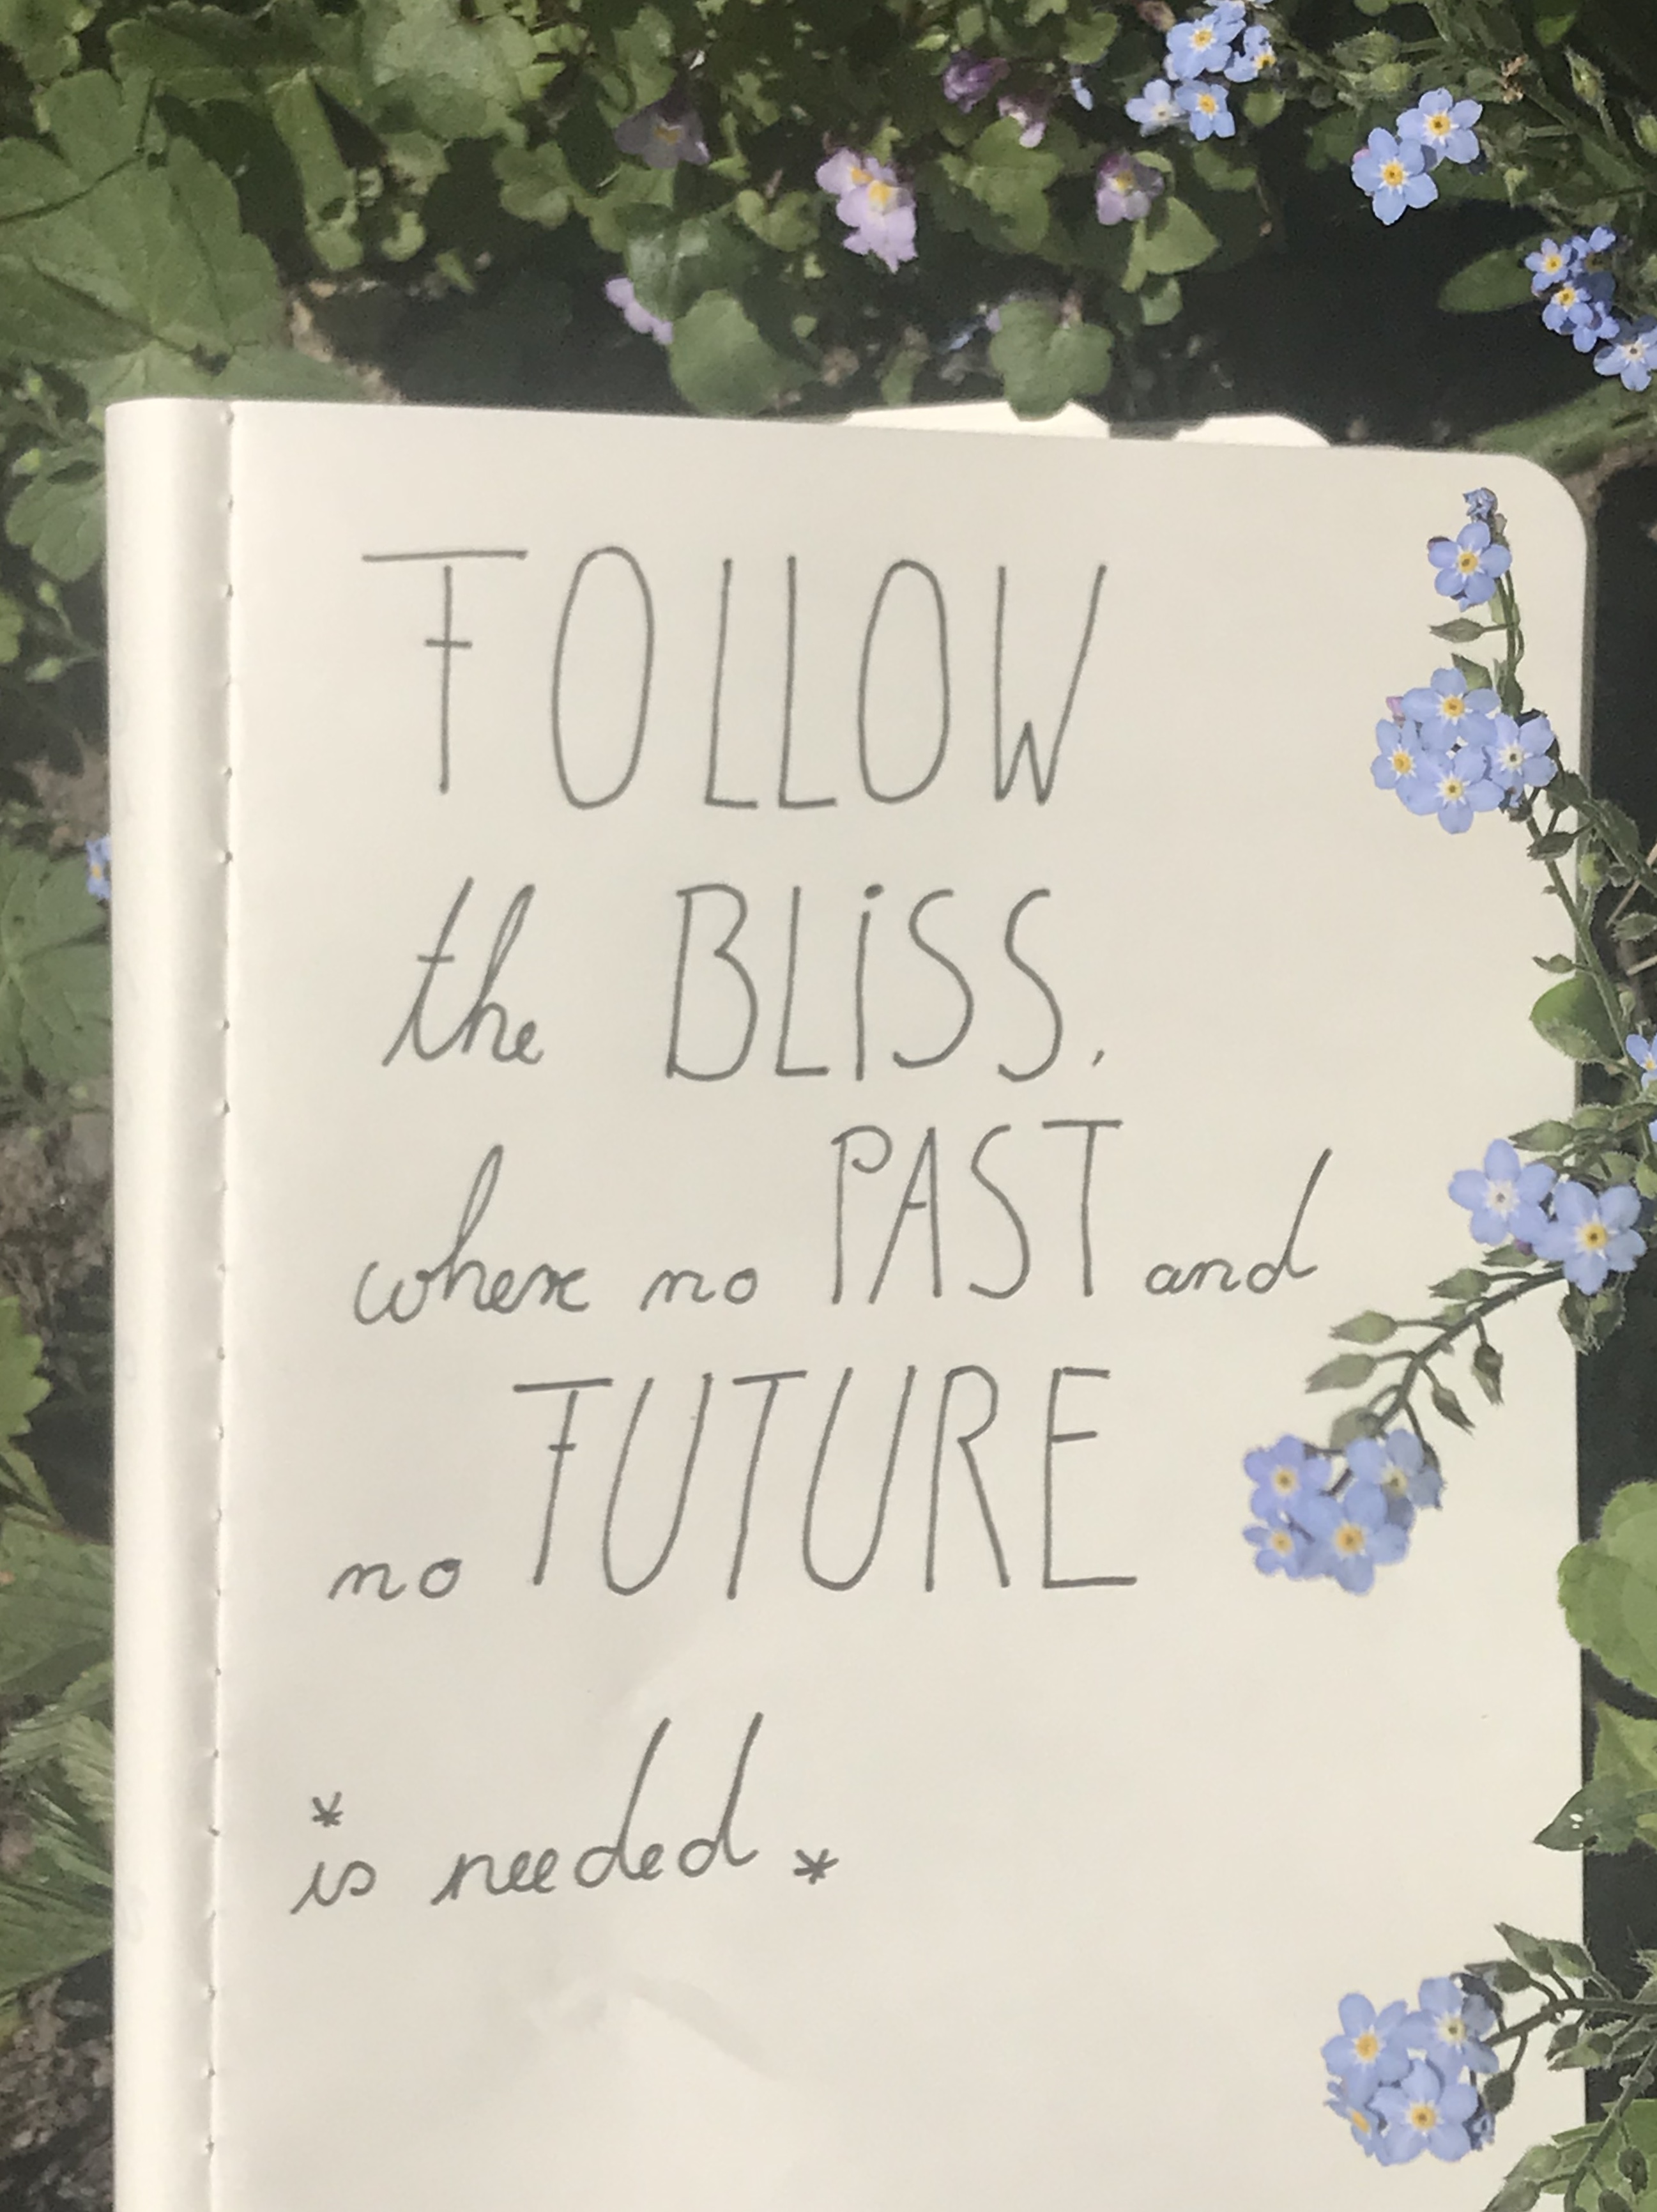 FOLLOW
the BLiSS,
where no PAST and
no FUTURE
*
is needed *